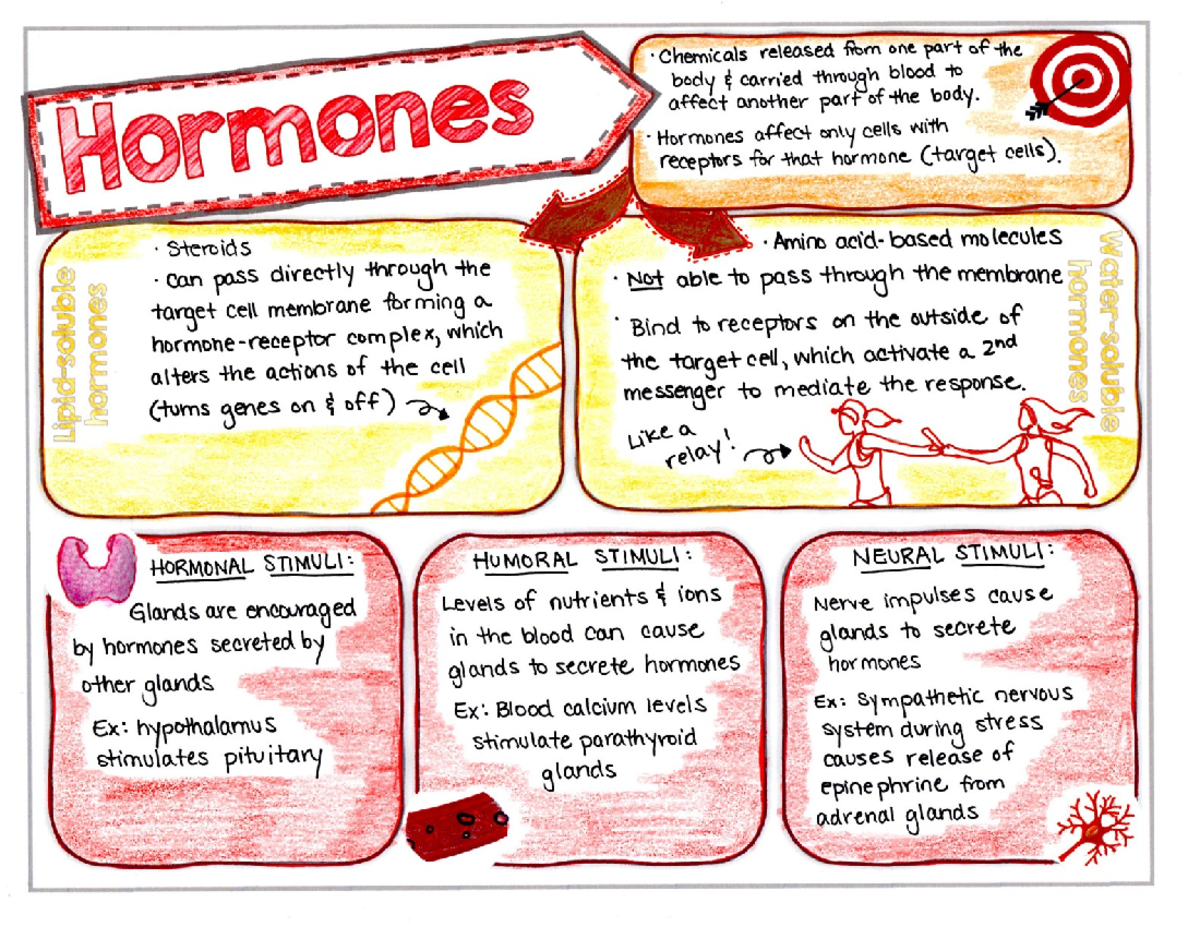 Hormones
· Chemicals released from one part of the
body & carried through blood to
affect another part of the body.
· Hormones affect only cells with
receptors for that hormone (target cells).
Lipid-soluble
hormones
· Steroids
· Can pass directly through the
target cell membrane forming a
hormone-receptor complex, which
alters the actions of the cell
(turns genes on & off)
Water-soluble
hormones
· Amino acid-based molecules
· Not able to pass through the membrane
· Bind to receptors on the outside of
the target cell, which activate a 2nd
messenger to mediate the response.
Like a
relay!
HORMONAL STIMULI:
Glands are encouraged
by hormones secreted by
other glands
Ex: hypothalamus
stimulates pituitary
HUMORAL STIMULI:
Levels of nutrients & ions
in the blood can cause
glands to secrete hormones
Ex: Blood calcium levels
stimulate parathyroid
glands
NEURAL STIMULI:
Nerve impulses cause
glands to secrete
hormones
Ex: Sympathetic nervous
system during stress
causes release of
epinephrine from
adrenal glands